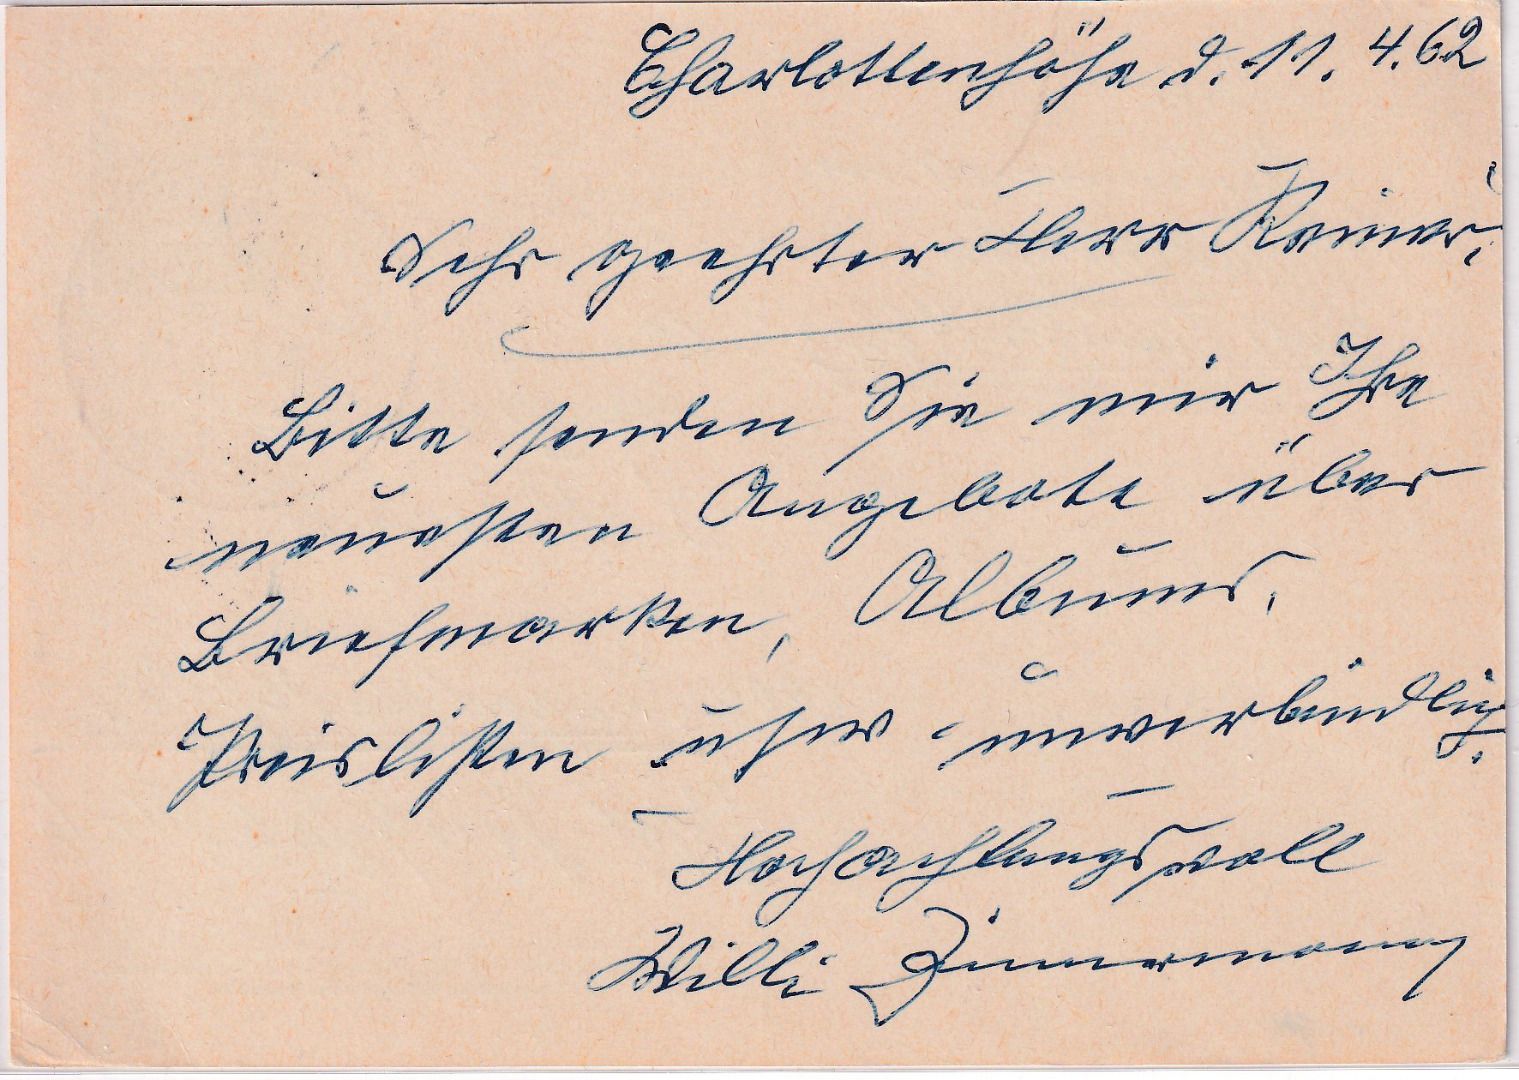 Charlottenhöhe d. 11. 4. 62
Sehr geehrter Herr Reiner,
Bitte senden Sie mir Ihre
neuesten Angebote über
Briefmarken, Albums,
Preislisten usw - unverbindlich.
Hochachtungsvoll
Willi Zimmermann